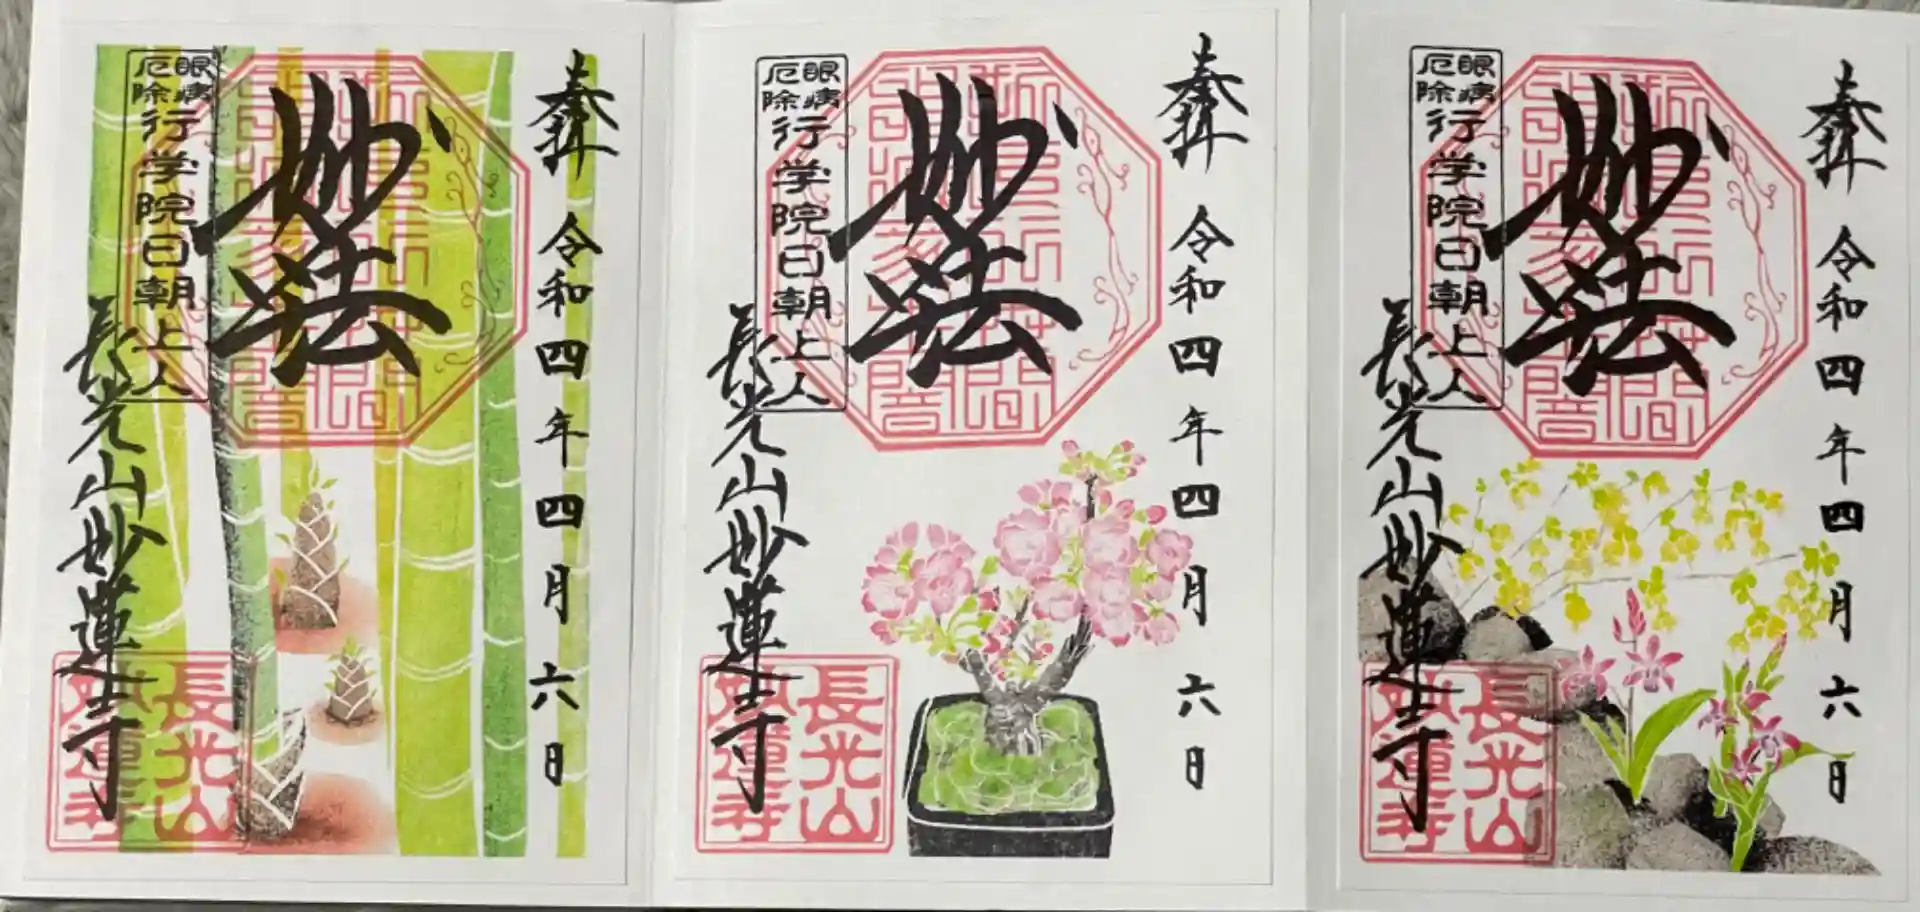 奉拝
令和四年四月六日
妙法
眼病
厄除
行学院日朝上人
長光山妙蓮寺
長光山
妙蓮寺
奉拝
令和四年四月六日
妙法
眼病
厄除
行学院日朝上人
長光山妙蓮寺
長光山
妙蓮寺
奉拝
令和四年四月六日
妙法
眼病
厄除
行学院日朝上人
長光山妙蓮寺
長光山
妙蓮寺